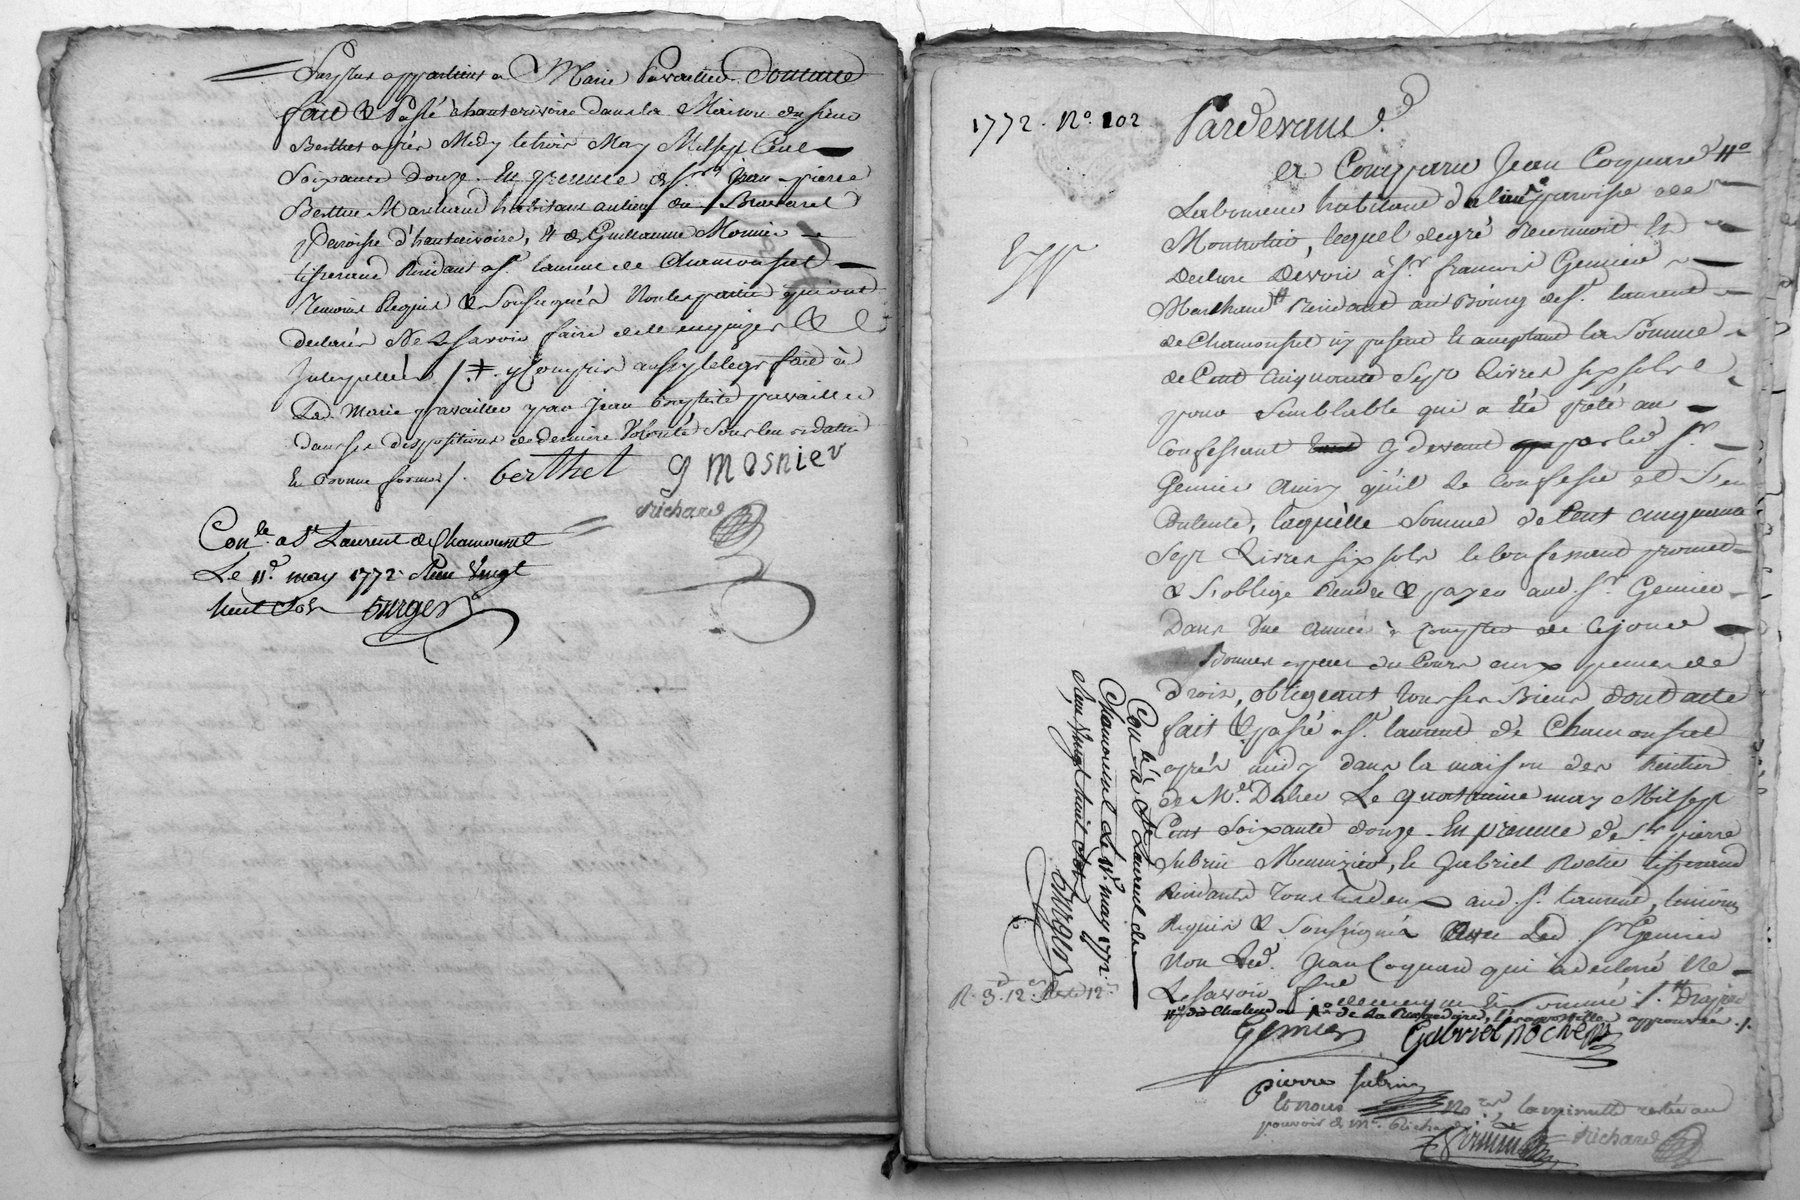 Surplus appartient a Marie Pavailler dont acte
fait & Passé a hauterivoire dans la Maison du sieur
Berthet après Midy le trois May Mil sept Cent
Soixante Douze. En presence de sr. jean pierre
Berthet Marchand habitant au lieu de
Paroisse d'hauterivoire, & de Guillaume Monier
tisserand Residant a st. laurent de Chamousset
temoins Requis & Soussignés Non les parties qui ont
declaré Ne le savoir faire de ce enquizes &
Interpellées /. ⌗. y Compris aussy le legs fait à
Lad. Marie pavailler par Jean baptiste pavailler
dans ses dispositions de derniere Volonté Sous leur datte
En bonne forme /. berthet g mosnier
Richard
Conlé a St Laurent de Chamousset
Le 11e. may 1772. Reçu Vingt
huit sols Burger
1772. No. 102
Pardevant
Est Comparu Jean Coquard ⌗
Laboureur habitant paroisse de
Montrotier, lequel de gré Reconnoit &
Declare Devoir à Sr. francois Gemier
Marchand Residant au Bourg de St. laurent
de Chamousset icy present & acceptant la Somme
de Cent cinquante Sept Livres six sols
pour Semblable qui a été prêté au
Confessant cy devant par led Sr.
Gemier Ainsy qu'il Le Confesse et S'en
Contente, laquelle Somme de Cent cinquante
Sept Livres six sols le Confessant promet
& S'oblige Rendre & payer aud. Sr. Gemier
Dans Une Année à Compter de ce jour
du Cours aux peines de
droit, obligeant tous ses Biens dont acte
fait & passé a St. laurent de Chamousset
après midy dans la maison des heritiers
de Me. Le quatrieme may Mil sept
Cent Soixante douze. En presence de Sr. pierre
Subrin Menuizier, & Gabriel Roche tisserand
Residants tous les deux aud. St. laurent, temoins
Requis & Soussignés Avec Led. Sr. Gemier
Non Led. Jean Coquard qui a declaré Ne
Le savoir fre de ce enquis & sommé /. ⌗
approuvée ./.
Gemier Gabriel Roche
pierre subrin
Et nous Nore, la minutte restée au
pouvoir de Me. Richard
Richard
Conlé a St Laurent de
Chamousset Le 11e. may 1772.
Reçu Vingt huit sols
Burger
R. 3. 12s. Reste 12s